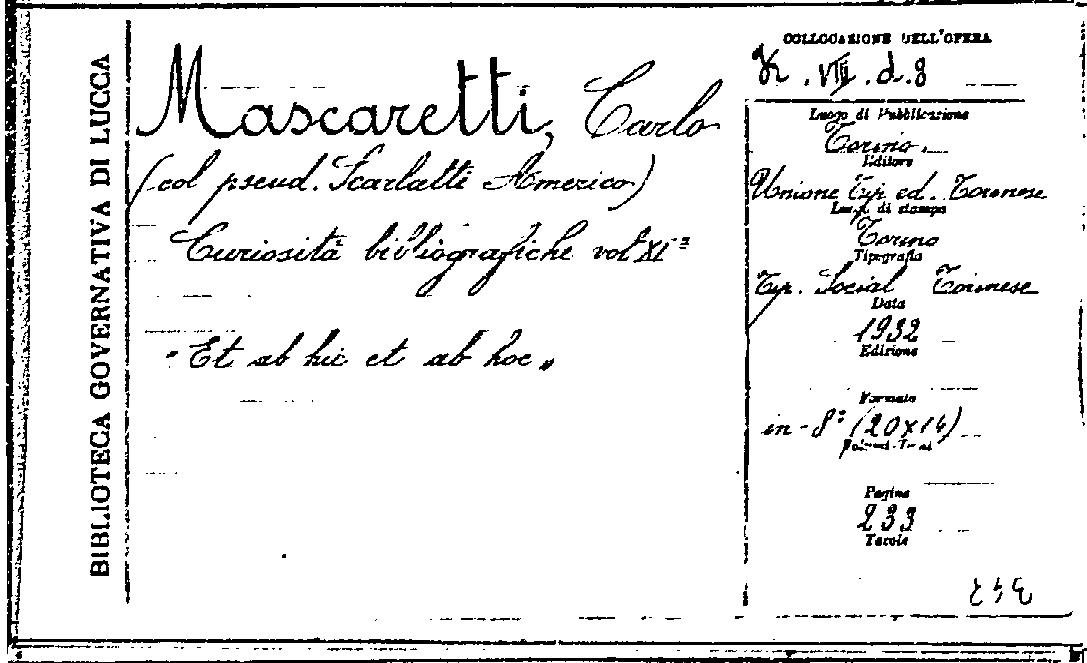 BIBLIOTECA GOVERNATIVA DI LUCCA
Mascaretti, Carlo
(col pseud. Scarlatti Americo)
Curiosità bibliografiche vol XIª
"Et ab hic et ab hoc"
COLLOCAZIONE DELL'OPERA
VIII. d. 8
Luogo di Pubblicazione
Torino.
Editore
Unione Tip. ed. Torinese
Luogo di stampa
Torino
Tipografia
Tip. Social Torinese
Data
1932
Edizione
Formato
in-8º (20x14)
Pagine
233
Tavole